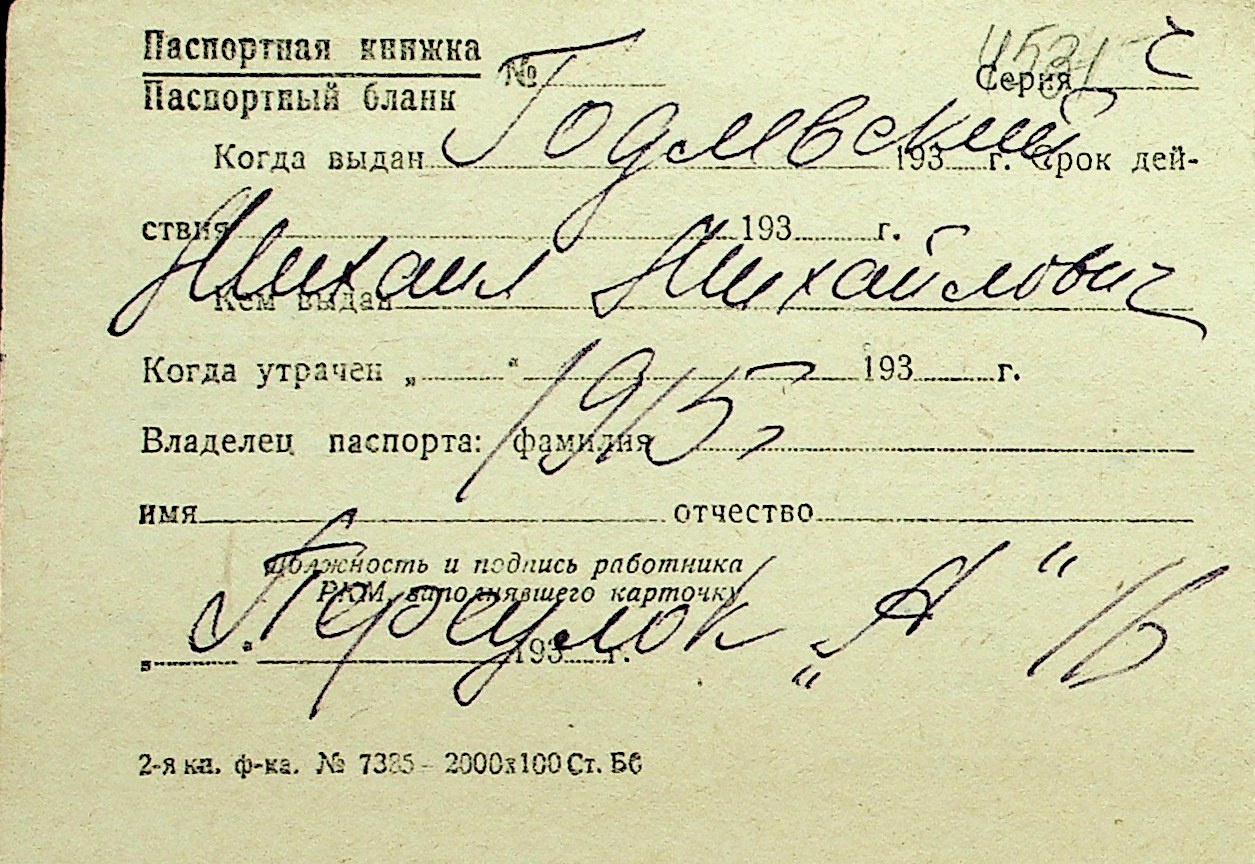 Паспортная книжка
Паспортный бланк № Серия С
4531
Годлевский
Когда выдан 193 г. Срок дей-
ствия 193 г.
Михаил Михайлович
Кем выдан
Когда утрачен „ “ 193 г.
1915 г
Владелец паспорта: фамилия
имя отчество
Должность и подпись работника
РКМ, заполнявшего карточку
Переулок „А“ 16
„ “ 193 г.
2-я кн. ф-ка. № 7385 – 2000х100 Ст. Б6